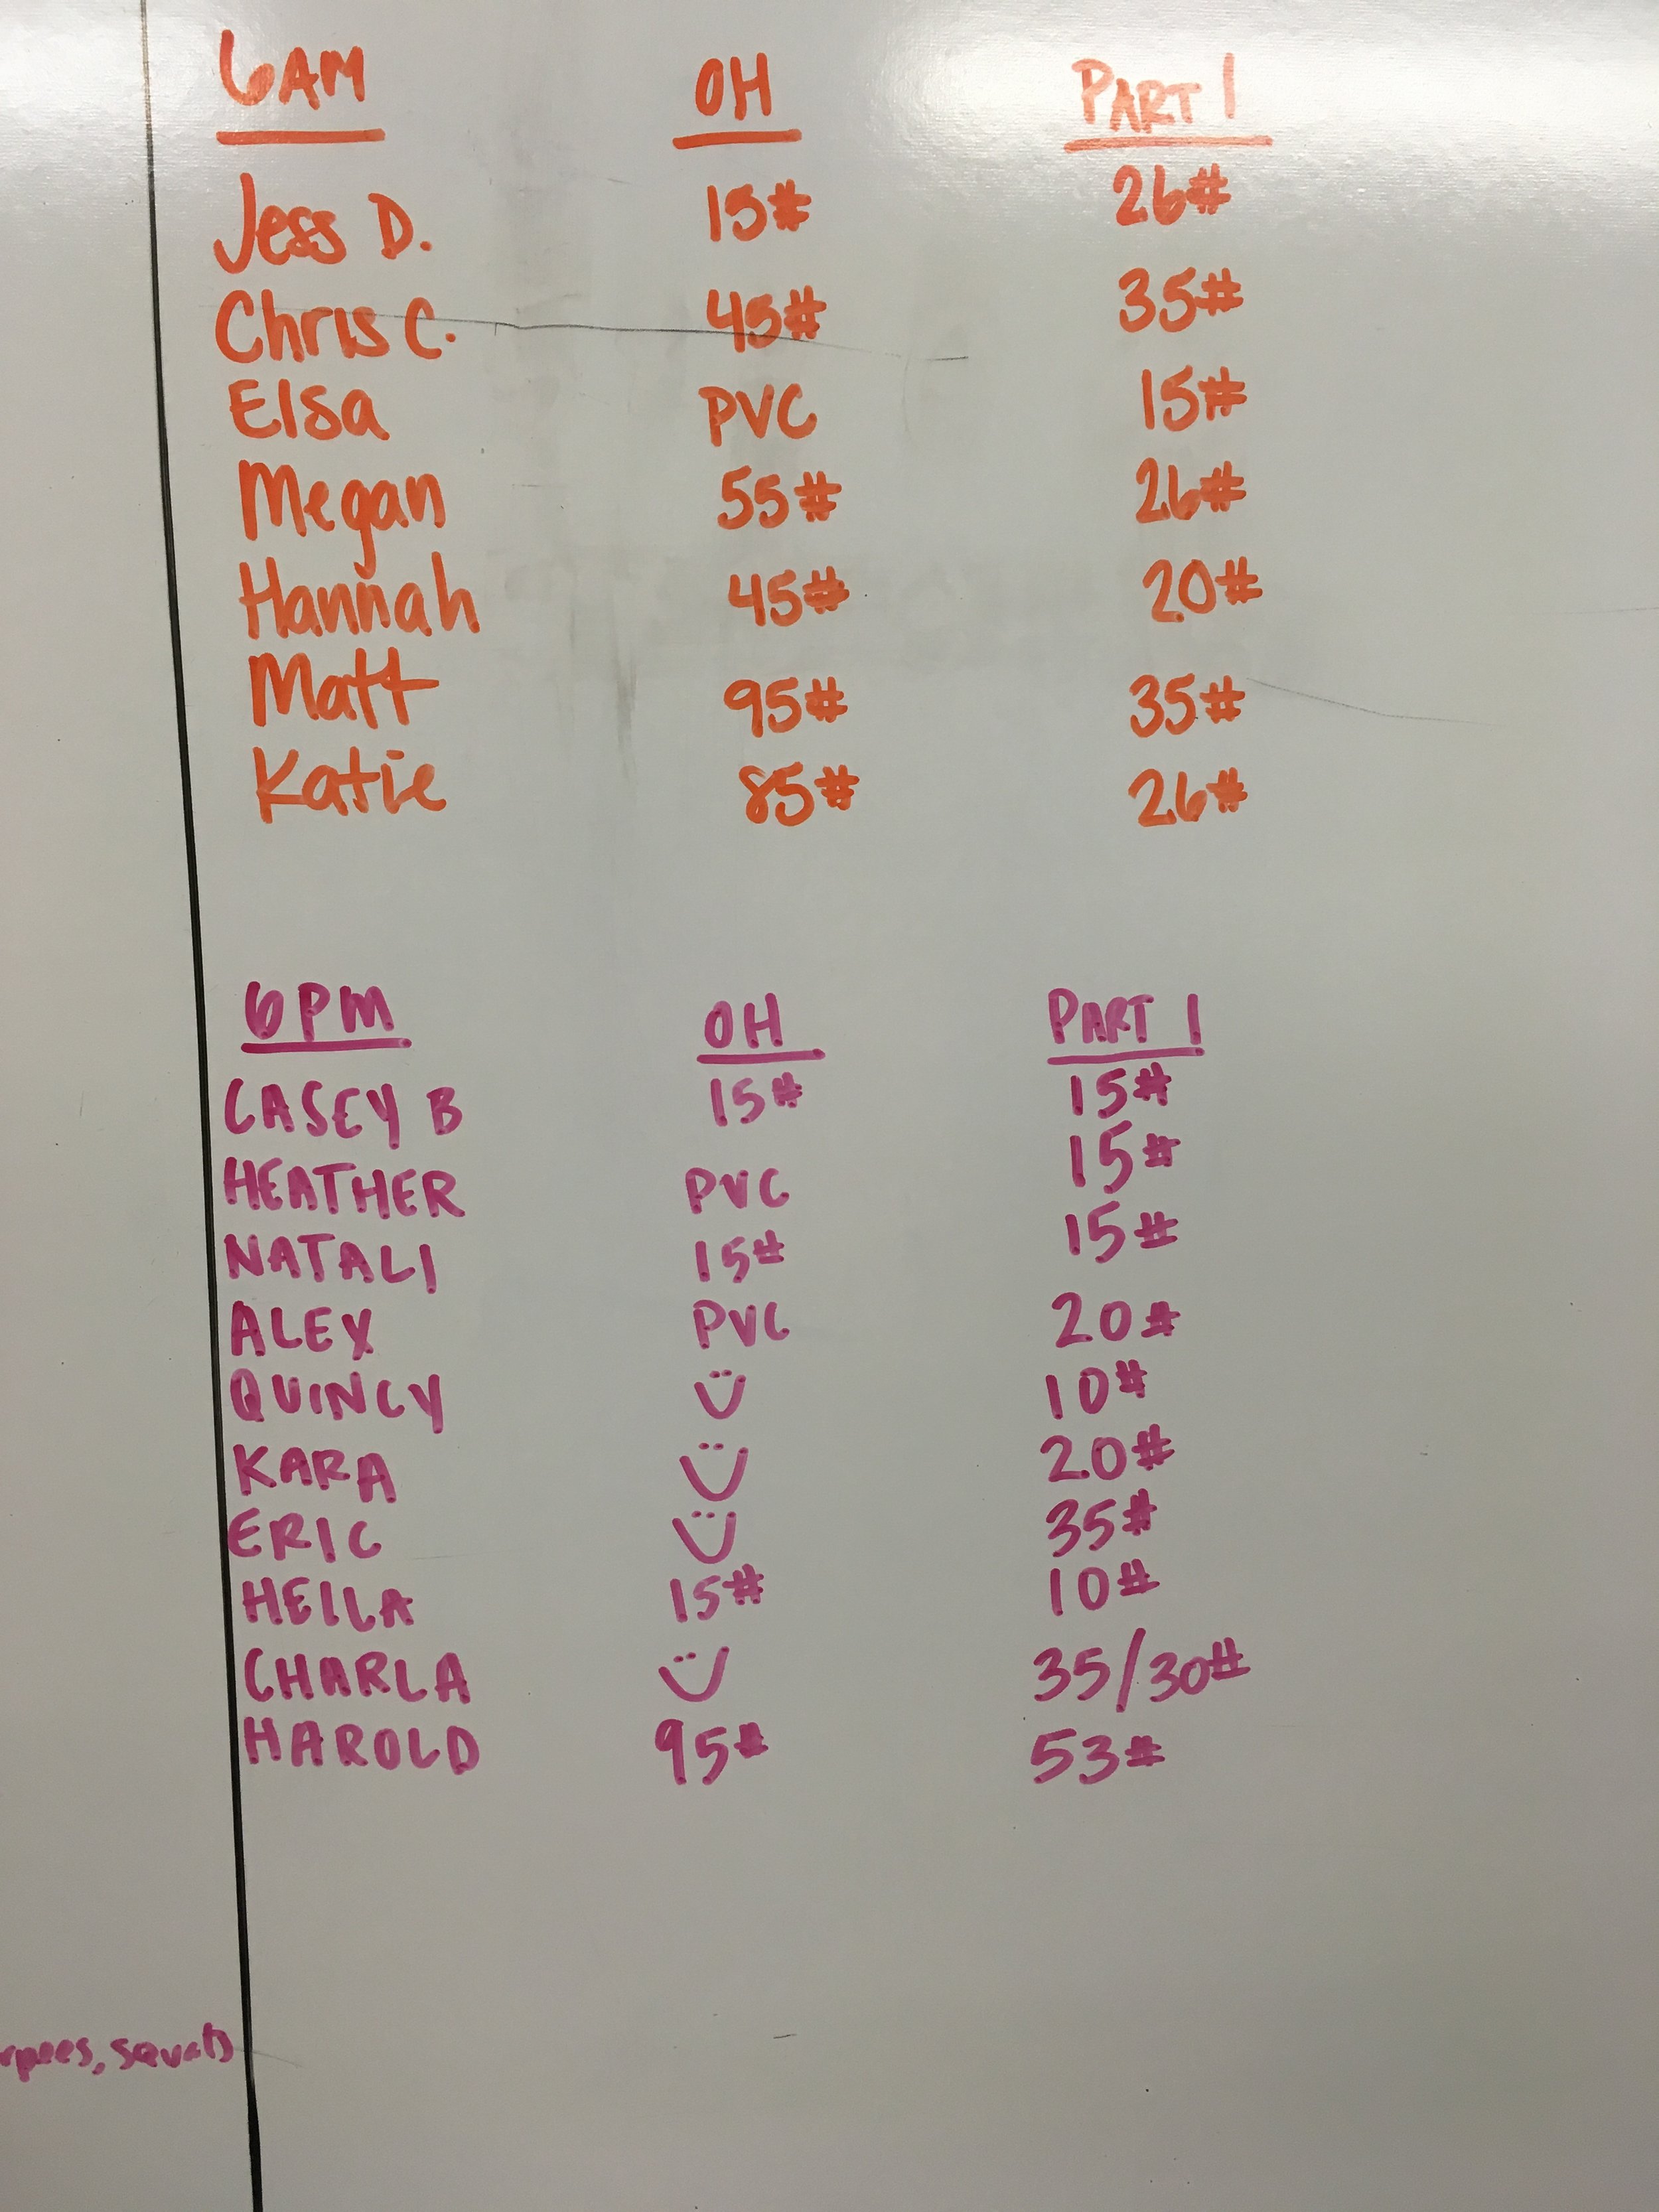 6AM OH PART 1
Jess D. 15# 26#
Chris C. 45# 35#
Elsa PVC 15#
Megan 55# 26#
Hannah 45# 20#
Matt 95# 35#
Katie 85# 26#
6PM OH PART 1
CASEY B 15# 15#
HEATHER PVC 15#
NATALI 15# 15#
ALEX PVC 20#
QUINCY 10#
KARA 20#
ERIC 35#
HEILA 15# 10#
CHARLA 35/30#
HAROLD 95# 53#
rpees, squats